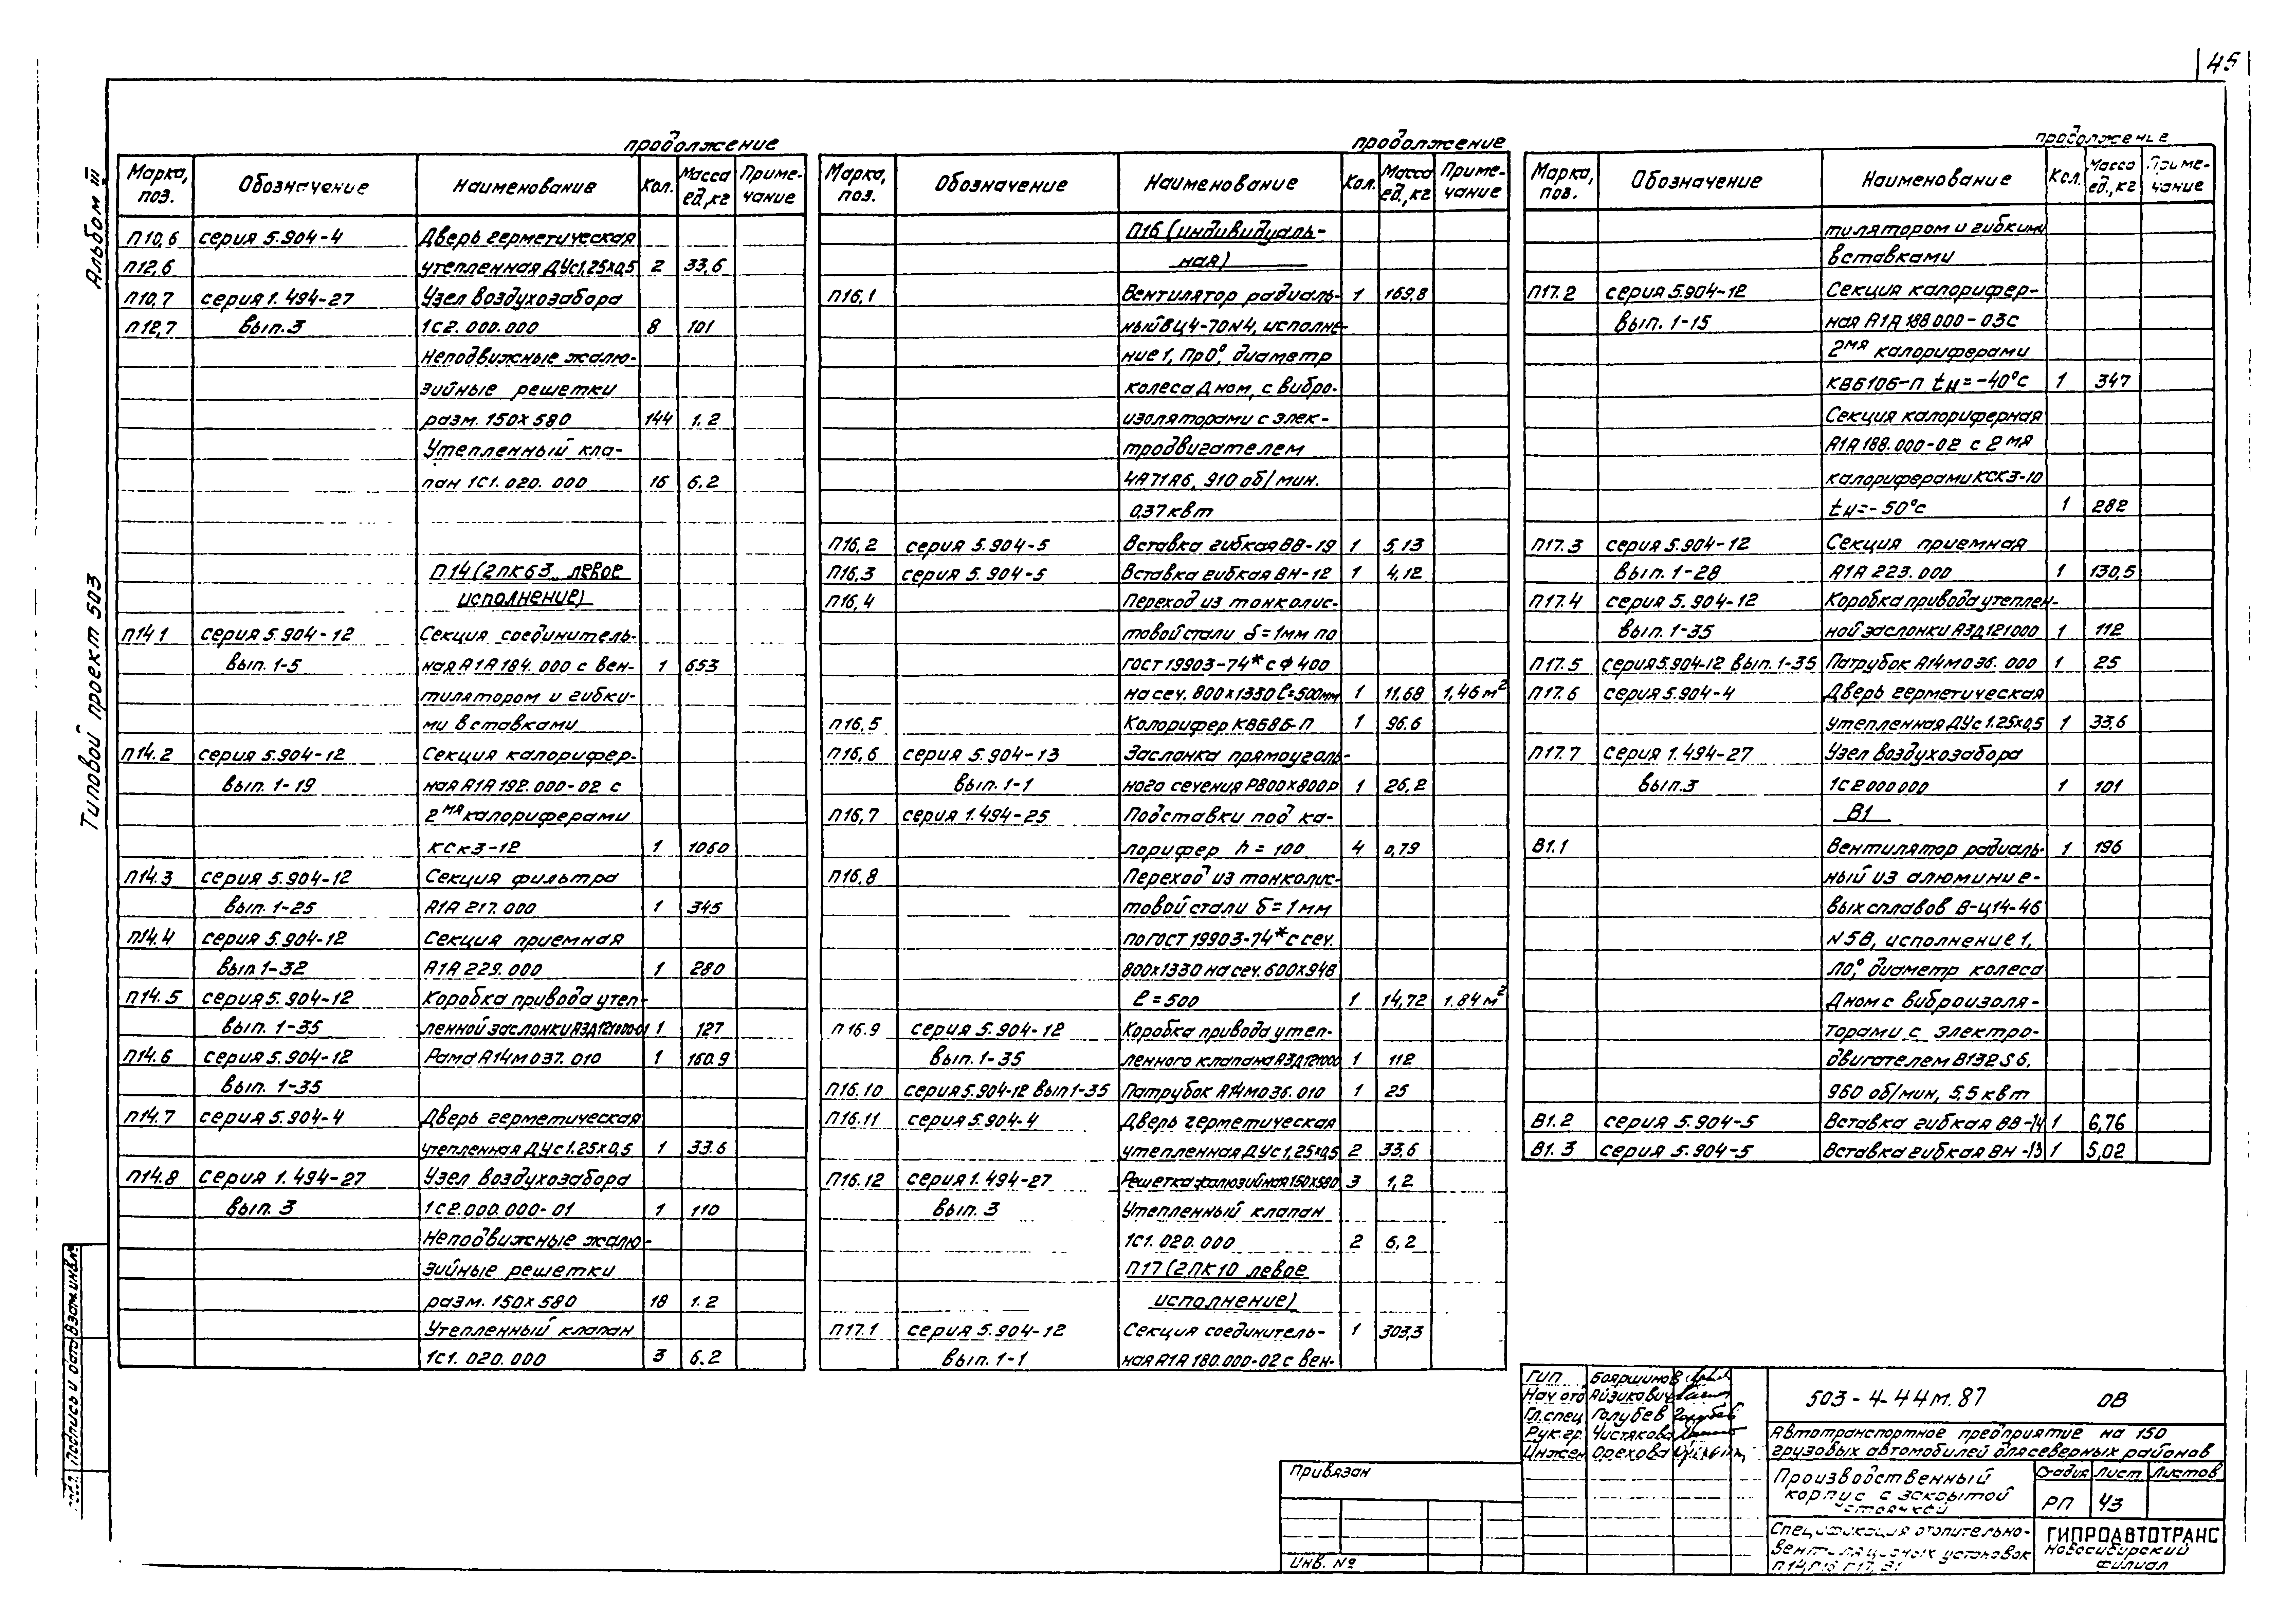 45
Альбом III
Типовой проект 503
продолжение
Марка, поз. Обозначение Наименование Кол. Масса ед.,кг Приме-чание
П10,6 серия 5.904-4 Дверь герметическая
П12,6 утепленная ДУс1,25х0,5 2 33,6
П10,7 серия 1.494-27 Узел воздухозабора
П12,7 вып.3 1С2.000.000 8 101
Неподвижные жалю-
зийные решетки
разм. 150х580 144 1.2
Утепленный кла-
пан 1С1.020.000 16 6,2
П14 (2ПК63 левое
исполнение)
П14 1 серия 5.904-12 Секция соединитель-
вып. 1-5 ная А1А 184.000 с вен- 1 653
тилятором и гибки-
ми вставками
П14.2 серия 5.904-12 Секция калорифер-
вып. 1-19 ная А1А 192.000-02 с
2мя калориферами
КСк3-12 1 1060
П14.3 серия 5.904-12 Секция фильтра
вып. 1-25 А1А 217.000 1 345
П14.4 серия 5.904-12 Секция приемная
вып 1-32 А1А 229.000 1 280
П14.5 серия 5.904-12 Коробка привода утеп-
вып. 1-35 ленной заслонки А3Д121000-01 1 127
П14.6 серия 5.904-12 Рама А14М037.010 1 160.9
вып. 1-35
П14.7 серия 5.904-4 Дверь герметическая
утепленная ДУс1.25х0,5 1 33.6
П14.8 серия 1.494-27 Узел воздухозабора
вып. 3 1С2.000.000-01 1 110
Неподвижные жалю-
зийные решетки
разм. 150х580 18 1.2
Утепленный клапан
1С1.020.000 3 6.2
продолжение
Марка, поз. Обозначение Наименование Кол. Масса ед.,кг Приме-чание
П16 (индивидуаль-
ная)
П16,1 Вентилятор радиаль- 1 169,8
ный ВЦ4-70N4, исполне-
ние 1, Пр0°, диаметр
колеса Дном, с вибро-
изоляторами с элек-
тродвигателем
4А71А6, 910 об/мин.
0,37квт
П16,2 серия 5.904-5 Вставка гибкая ВВ-19 1 5,13
П16,3 серия 5.904-5 Вставка гибкая ВН-12 1 4,12
П16,4 Переход из тонколис-
товой стали δ=1мм по
ГОСТ 19903-74* с ф 400
на сеч. 800х1330 ℓ=500мм 1 11,68 1,46 м²
П16,5 Колорифер КВб8Б-П 1 96.6
П16,6 серия 5.904-13 Заслонка прямоуголь-
вып. 1-1 ного сечения Р800х800Р 1 26,2
П16,7 серия 1.494-25 Подставки под ка-
лорифер h = 100 4 0,79
П16,8 Переход из тонколис-
товой стали δ=1мм
по ГОСТ 19903-74* с сеч.
800х1330 на сеч. 600х948
ℓ = 500 1 14,72 1.84 м²
П 16.9 серия 5.904-12 Коробка привода утеп-
вып. 1-35 ленного клапана А3Д121000 1 112
П16.10 серия 5.904-12 вып 1-35 Патрубок А14М036.010 1 25
П16.11 серия 5.904-4 Дверь герметическая
утепленная ДУс1,25х0,5 2 33,6
П16.12 серия 1.494-27 Решетка жалюзийная 150х580 3 1,2
вып. 3 Утепленный клапан
1С1.020.000 2 6,2
П17 (2ПК10 левое
исполнение)
П17.1 серия 5.904-12 Секция соединитель- 1 303,3
вып. 1-1 ная А1А 180.000-02 с вен-
продолжение
Марка, поз. Обозначение Наименование Кол. Масса ед.,кг Приме-чание
тилятором и гибкими
вставками
П17.2 серия 5.904-12 Секция калорифер-
вып. 1-15 ная А1А 188000-03с
2мя калориферами
КВб10Б-П tн=-40°с 1 347
Секция калориферная
А1А 188.000-02 с 2мя
калориферами КСк3-10
tн=-50°с 1 282
П17.3 серия 5.904-12 Секция приемная
вып. 1-28 А1А 223.000 1 130,5
П17.4 серия 5.904-12 Коробка привода утеплен-
вып. 1-35 ной заслонки А3Д121000 1 112
П17.5 серия 5.904-12 вып. 1-35 Патрубок А14М036.000 1 25
П17.6 серия 5.904-4 Дверь герметическая
утепленная ДУс1.25х0,5 1 33,6
П17.7 серия 1.494-27 Узел воздухозабора
вып.3 1С2000000 1 101
В1
В1.1 Вентилятор радиаль- 1 196
ный из алюминие-
вых сплавов В-Ц14-46
N5В, исполнение 1,
Л0°, диаметр колеса
Дном с виброизоля-
торами с электро-
двигателем В132S6.
960 об/мин, 5,5квт
В1.2 серия 5.904-5 Вставка гибкая ВВ-14 1 6,76
В1.3 серия 5.904-5 Вставка гибкая ВН-13 1 5,02
Взам.инв.№
Подпись и дата
ГИП Бояршинов
Нач отд Айзикович
Гл.спец Голубев
Рук.гр. Чистякова
Инжен Орехова
503-4-44м.87 ОВ
Автотранспортное предприятие на 150
грузовых автомобилей для северных районов
Производственный
корпус с закрытой
стоянкой
Стадия Лист Листов
РП 43
Спецификация отопительно-
вентиляционных установок
П14,П16 П17, В1
ГИПРОАВТОТРАНС
Новосибирский
филиал
Привязан
Инв. №